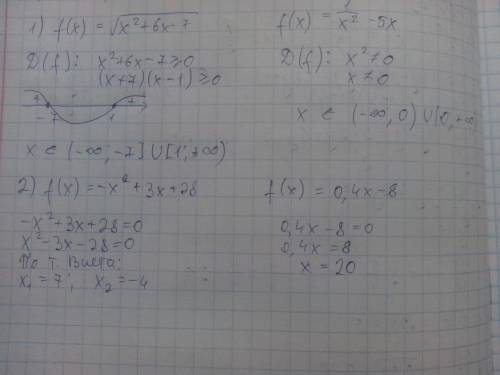 1) f(x) = √x²+6x-7
D(f): x²+6x-7≥0
(x+7)(x-1)≥0
+ - 7 1 +
x ∈ (-∞; -7] ∪ [1; +∞)
f(x) = 1/x² - 5x
D(f): x² ≠ 0
x ≠ 0
x ∈ (-∞, 0) ∪ (0, +∞
2) f(x) = -x² + 3x + 28
-x² + 3x + 28 = 0
x² - 3x - 28 = 0
По т. Виета:
x₁ = 7; x₂ = -4
f(x) = 0,4x - 8
0,4x - 8 = 0
0,4x = 8
x = 20